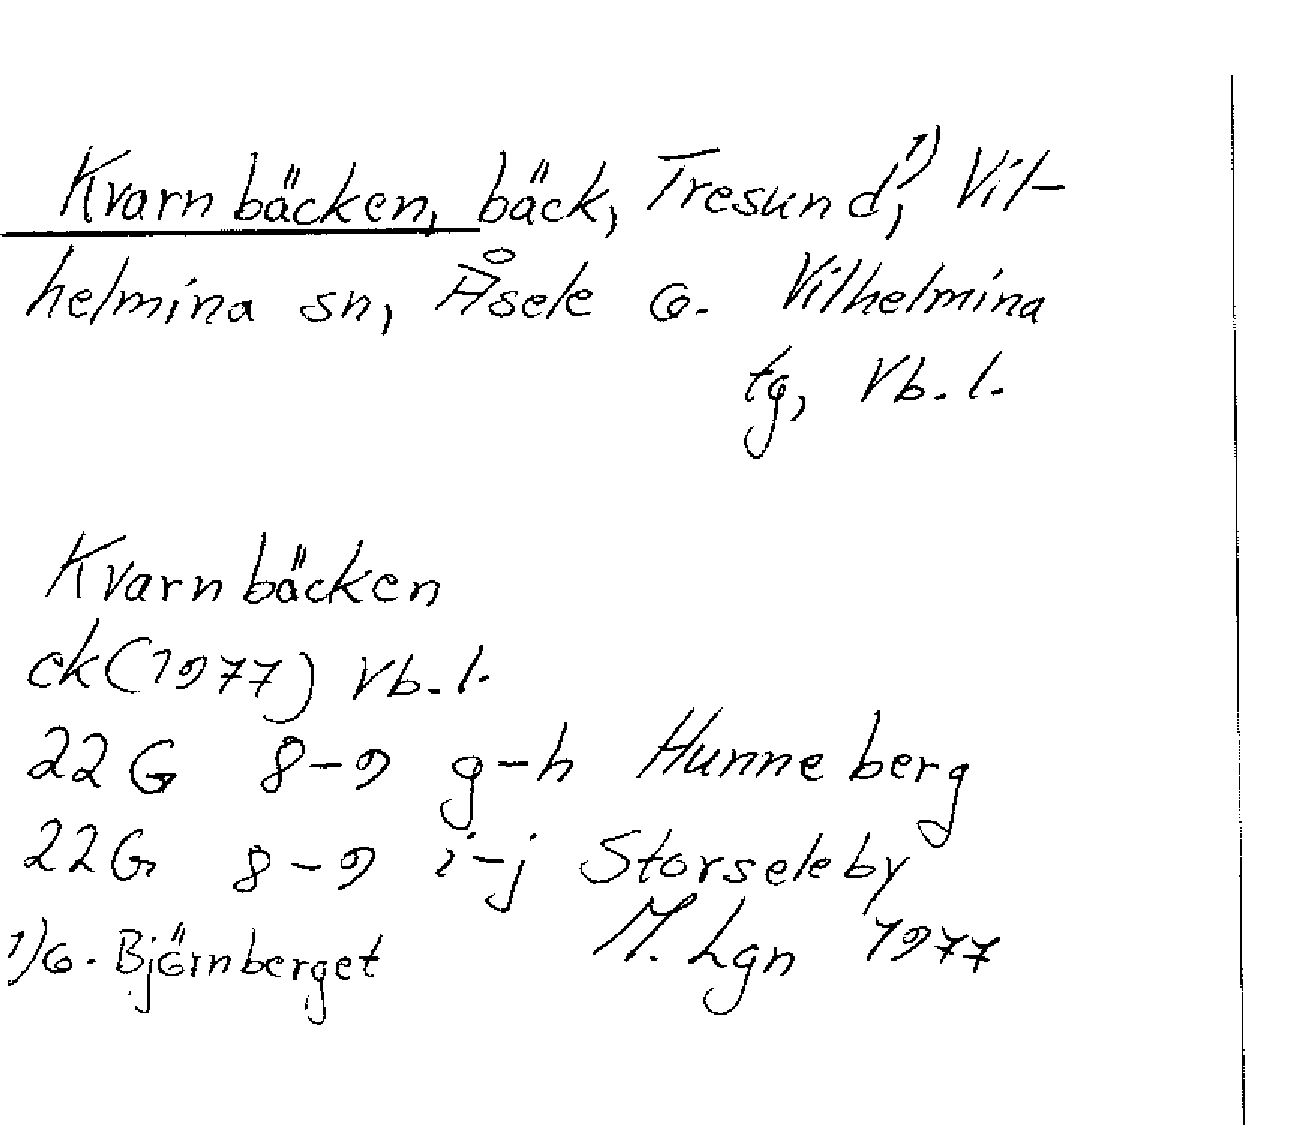 Kvarnbäcken, bäck, Tresund,¹⁾ Vil-
helmina sn, Åsele o. Vilhelmina
tg, Vb. l.
Kvarnbäcken
ek (1977) Vb. l.
22G 8-9 g-h Hunneberg
22G 8-9 i-j Storseleby
1) o. Björnberget M. Lgn 1977